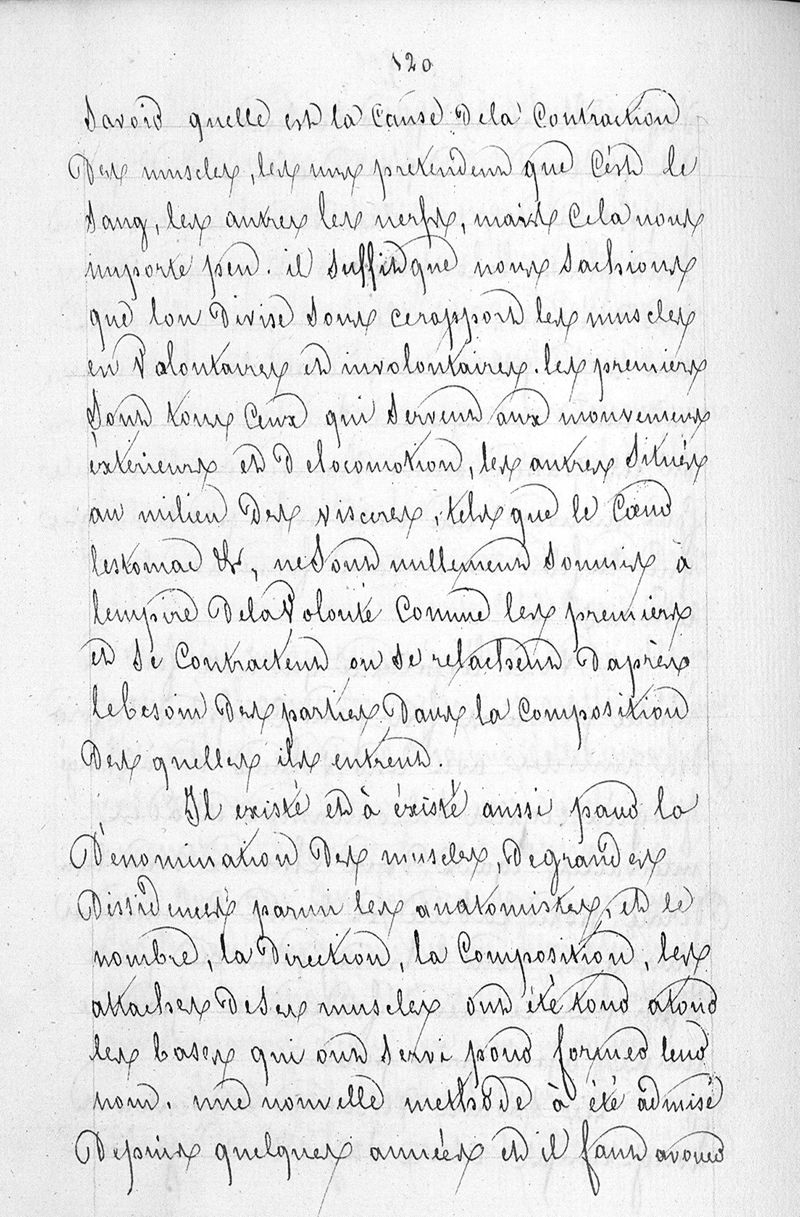 120
Savoir quelle est la cause dela contraction
Des muscles, les uns pretendent que C'est le
Sang, les autres les nerfs, mais cela nous
importe peu. il suffit que nous sachions
que lon Divise sous cerapport les muscles
en Volontaires et involontaires. les premiers
sont tous ceux qui servent aux mouvemens
èxterieurs et Delocomotion, les autres situés
au milieu des visceres, tels que le Cœur
lestomac &c, nesont nullement soumis à
lempire Dela Volonté comme les premiers
et se contractent ou se relachent Daprès
lebesoin Des parties Dans la Composition
Des quelles ils entrent.
Il éxisté et à éxisté aussi pour la
Dénomination Des muscles, Degrandes
Dissidences parmi les anatomistes, et le
nombre, la Direction, la Composition, les
attaches Deses muscles ont été tour atour
les bases qui ont servi pour former leur
nom. une nouvelle methode à été admise
Depuis quelques années et il faut avouer